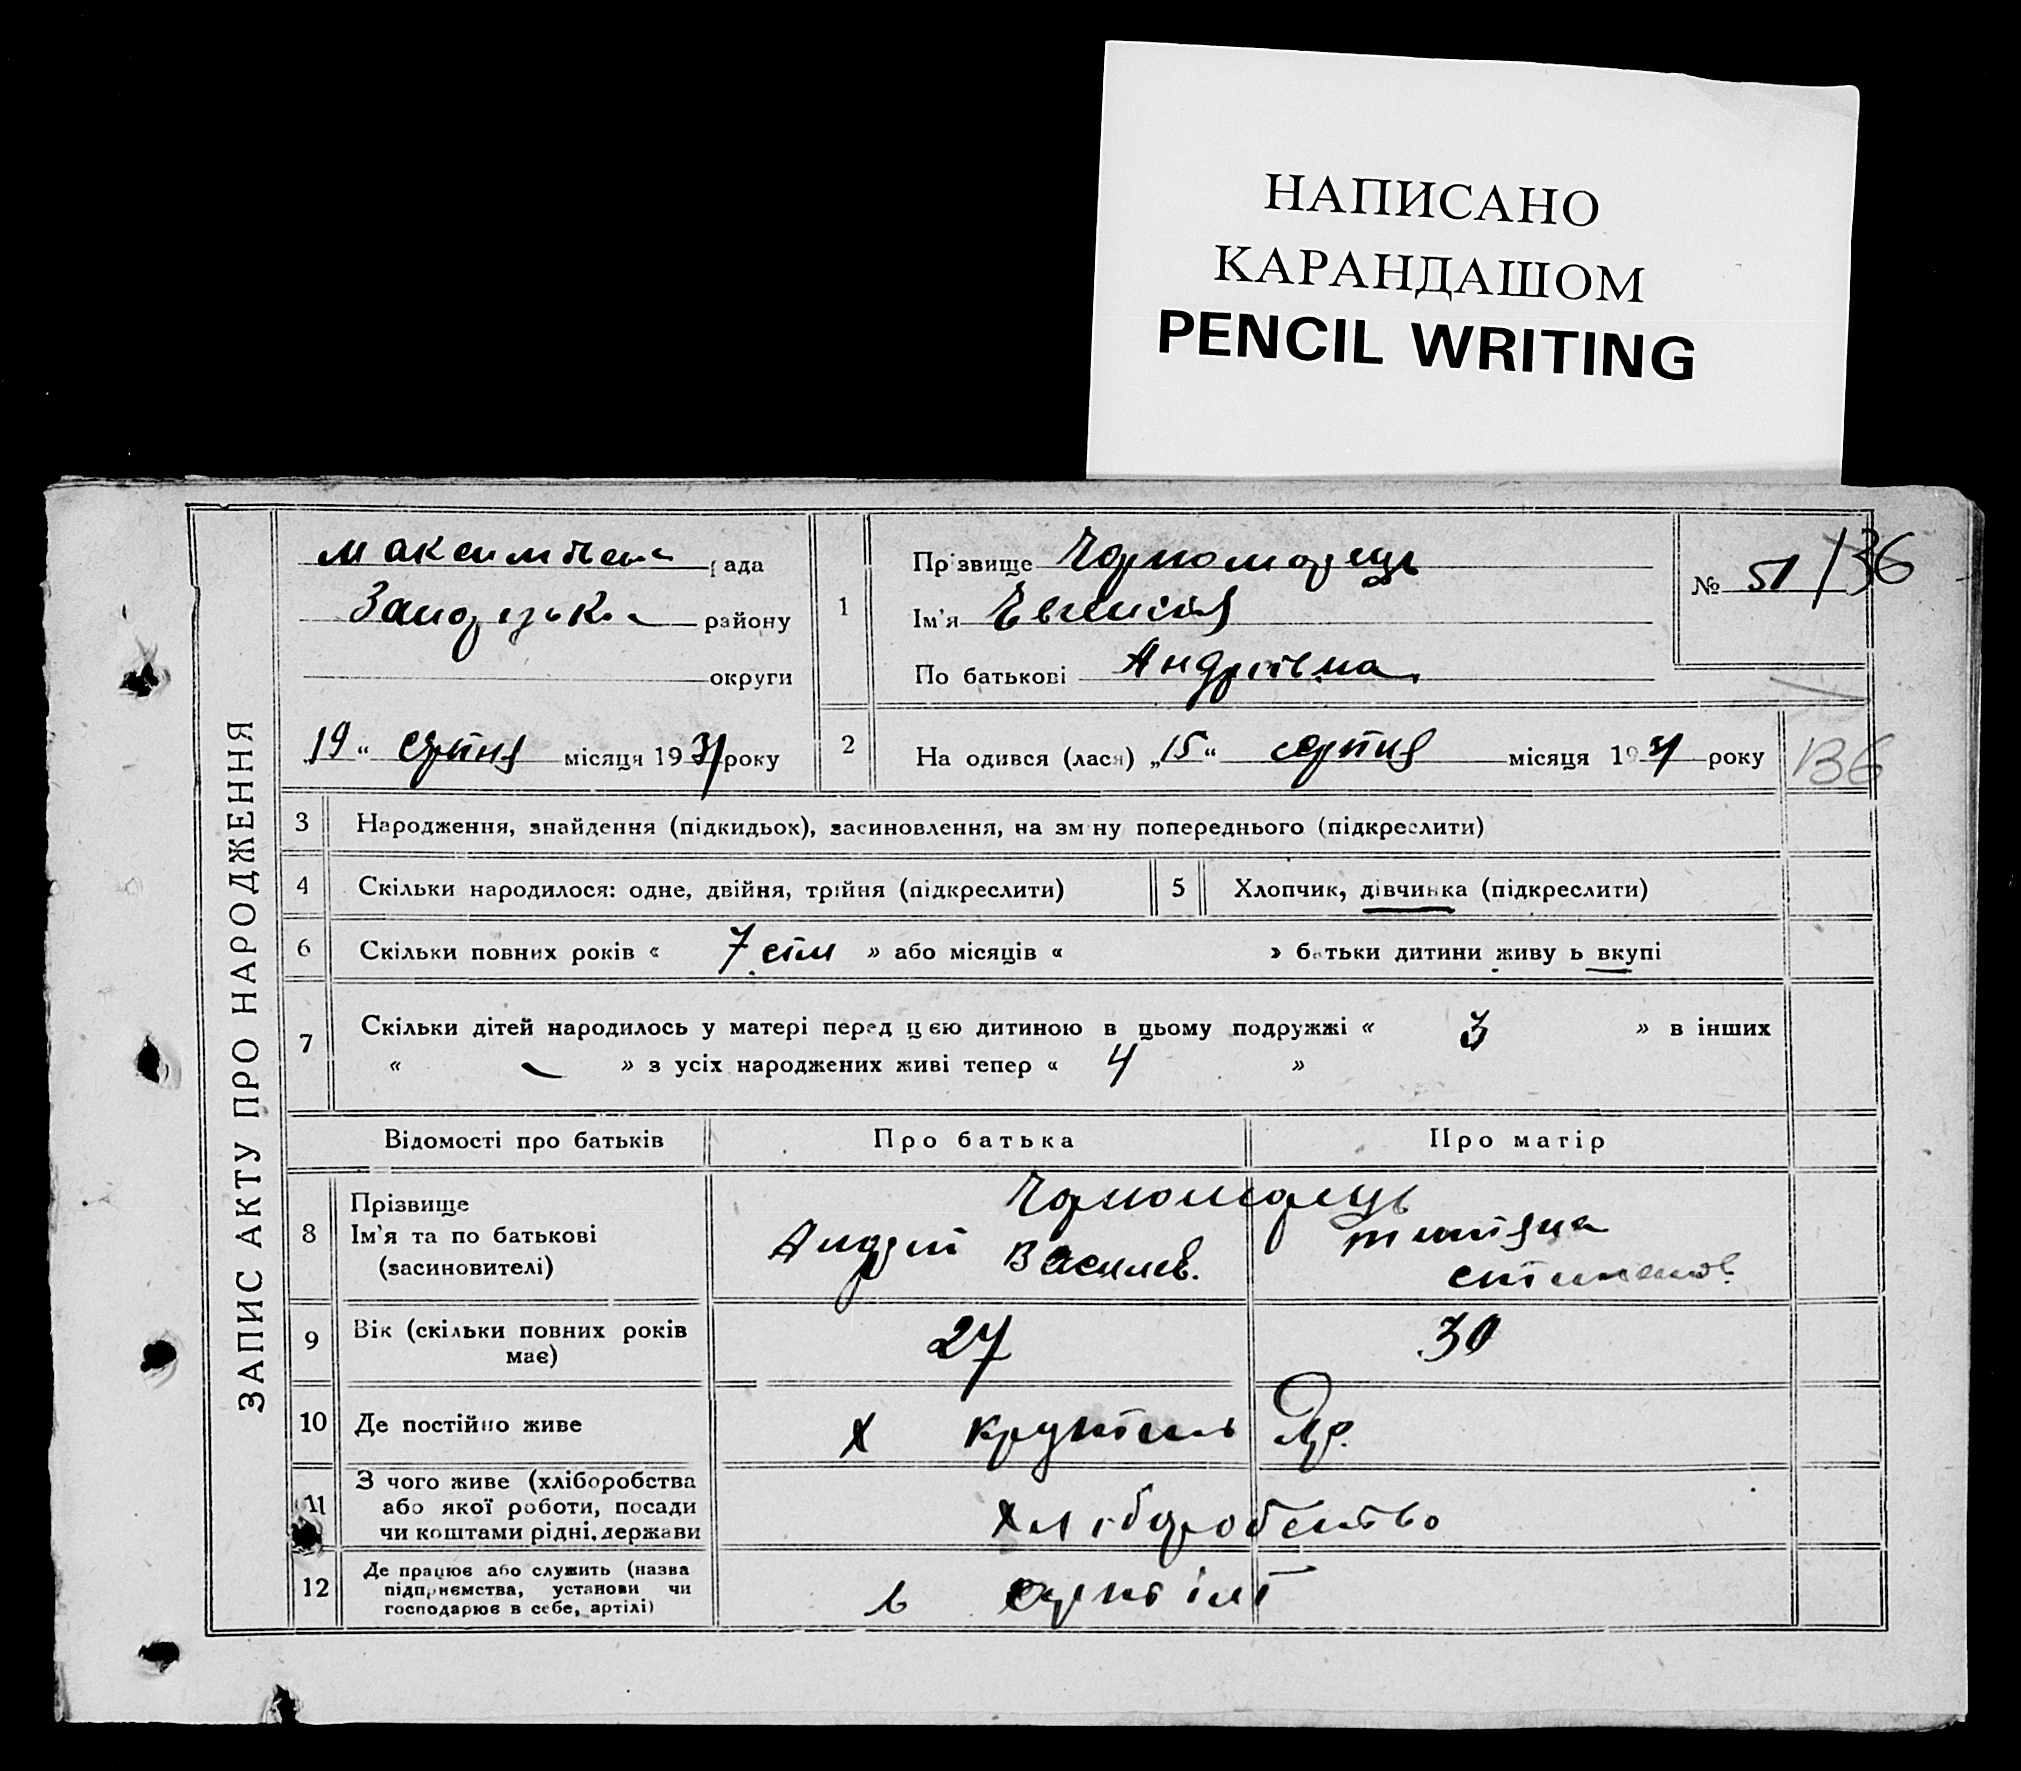 НАПИСАНО
КАРАНДАШОМ
PENCIL WRITING
ЗАПИС АКТУ ПРО НАРОДЖЕННЯ
рада
району
округи
19 " серпня місяця 1931 року
1
Прізвище Чорноморець
Ім'я Євгенія
По батькові Андріївна
№ 51/36
2 На одився (лася) „15" серпня місяця 1931 року
136
3 Народження, знайдення (підкидьок), засиновлення, на зміну попереднього (підкреслити)
4 Скільки народилося: одне, двійня, трійня (підкреслити) 5 Хлопчик, дівчинка (підкреслити)
6 Скільки повних років « 7 сім » або місяців « » батьки дитини живу ь вкупі
7 Скільки дітей народилось у матері перед цією дитиною в цьому подружжі « 3 » в інших
« — » з усіх народжених живі тепер « 4 »
Відомості про батьків Про батька Про матір
8 Прізвище
Ім'я та по батькові
(засиновителі)
Чорноморець
Андрій Василев.
9 Вік (скільки повних років має) 27 30
10 Де постійно живе х
11 З чого живе (хліборобства
або якої роботи, посади
чи коштами рідні, держави
Хліборобство
12 Де працює або служить (назва
підприємства, установи чи
господарює в себе, артілі)
в